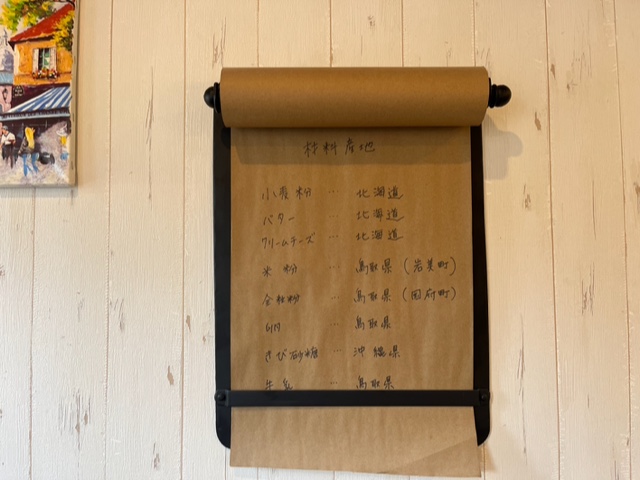 材料産地
小麦粉 … 北海道
バター … 北海道
クリームチーズ … 北海道
米粉 … 鳥取県(岩美町)
全粒粉 … 鳥取県(国府町)
卵 … 鳥取県
きび砂糖 … 沖縄県
牛乳 … 鳥取県